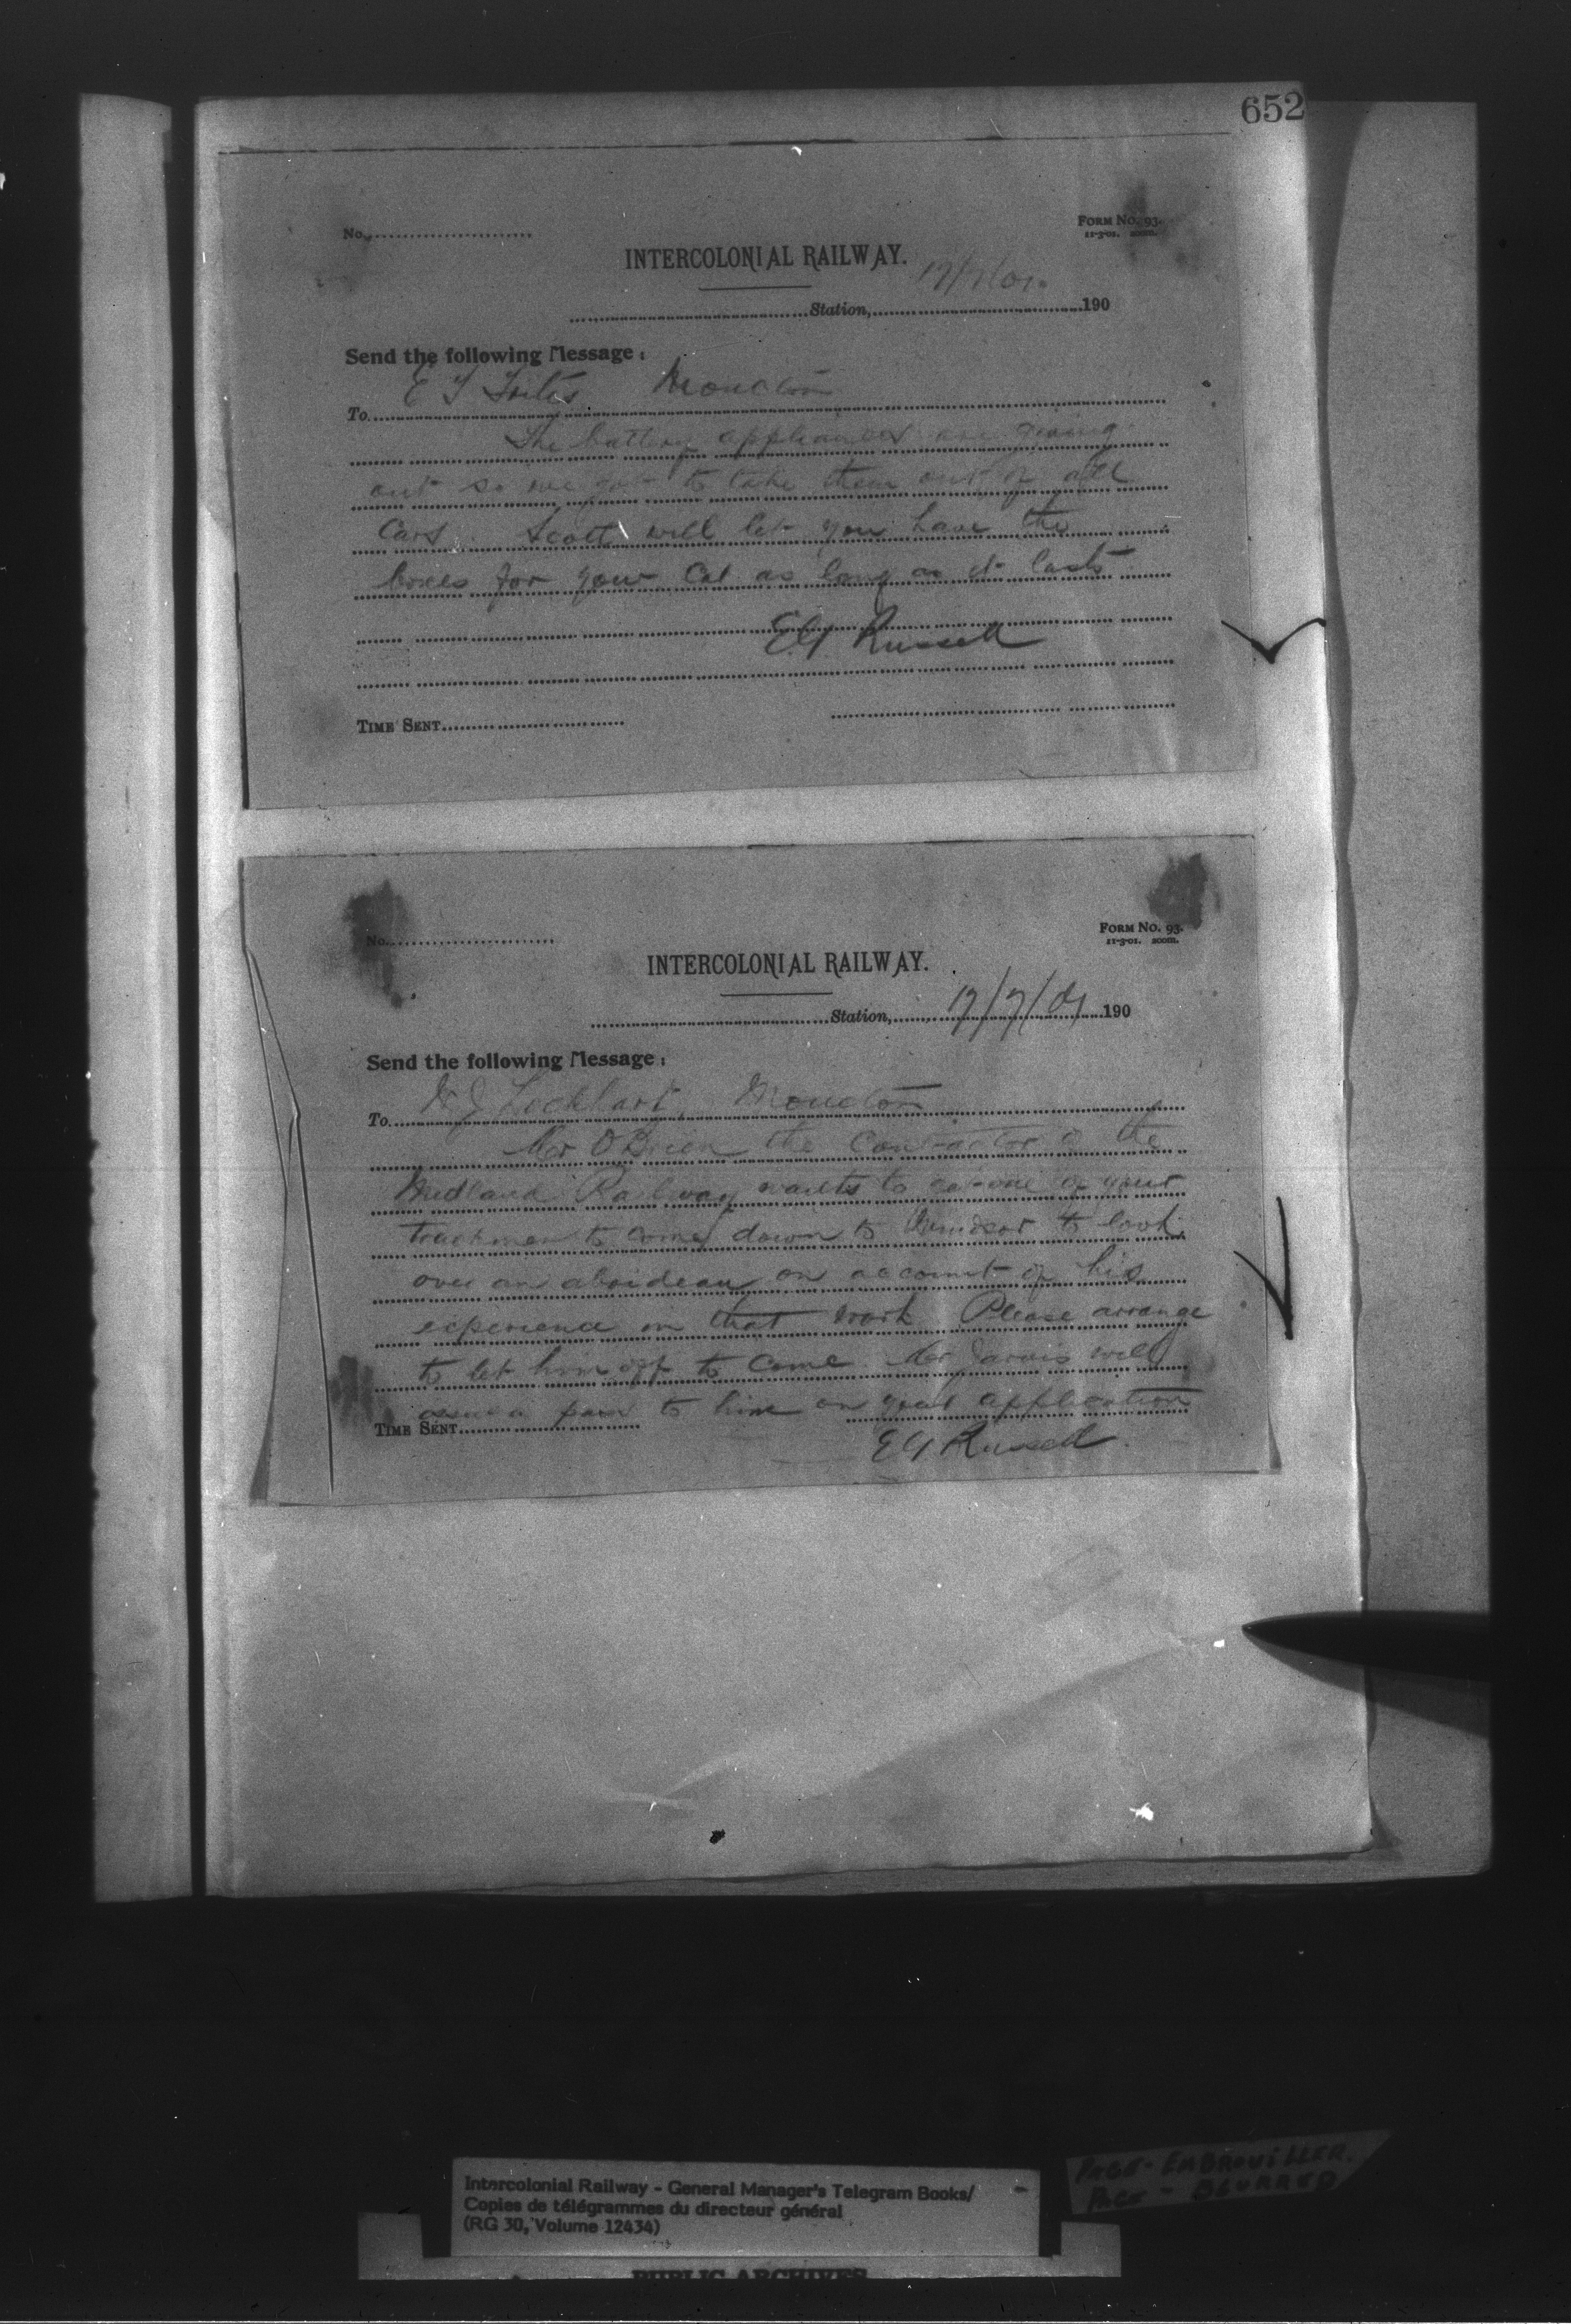 652
No.
FORM No. 93.
11-3-01. 200m.
INTERCOLONIAL RAILWAY.
Station, 17/7/01. 190
Send the following Message:
To E T Moncton
The battery appliances are giving
out so we got to take them out of all
Cars. Scott will let you have the
boxes for your Car as long as it lasts
EG Russell
TIME SENT
No.
FORM No. 93.
11-3-01. 200m.
INTERCOLONIAL RAILWAY.
Station, 17/7/01 190
Send the following Message:
To Lockhart, Moncton
Mr O'Brien the Contractor of the
Midland Railway wants to get one of your
trackmen to come down to Windsor to look
over an aboideau on account of his
experience in that work Please arrange
to let him off to come. Mr Jarvis will
issue a pass to him on your application
TIME SENT
EG Russell.
Intercolonial Railway - General Manager's Telegram Books/
Copies de télégrammes du directeur général
(RG 30, Volume 12434)
PAGE - EMBROUILLER.
PAGE - BLURRED
PUBLIC ARCHIVES